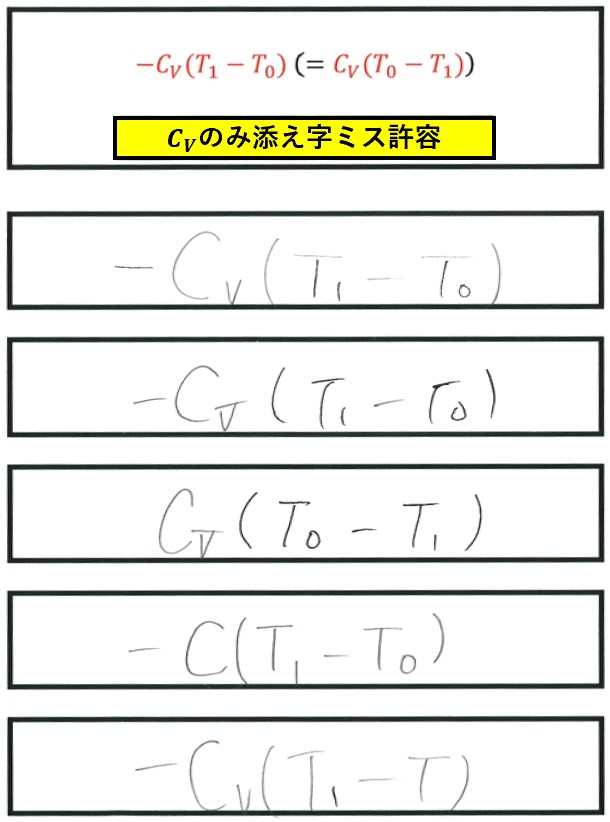 −C_V(T₁ − T₀) (= C_V(T₀ − T₁))
C_Vのみ添え字ミス許容
−C_V(T₁ − T₀)
−C_V(T₁ − T₀)
C_V(T₀ − T₁)
−C(T₁ − T₀)
−C_V(T₁ − T)